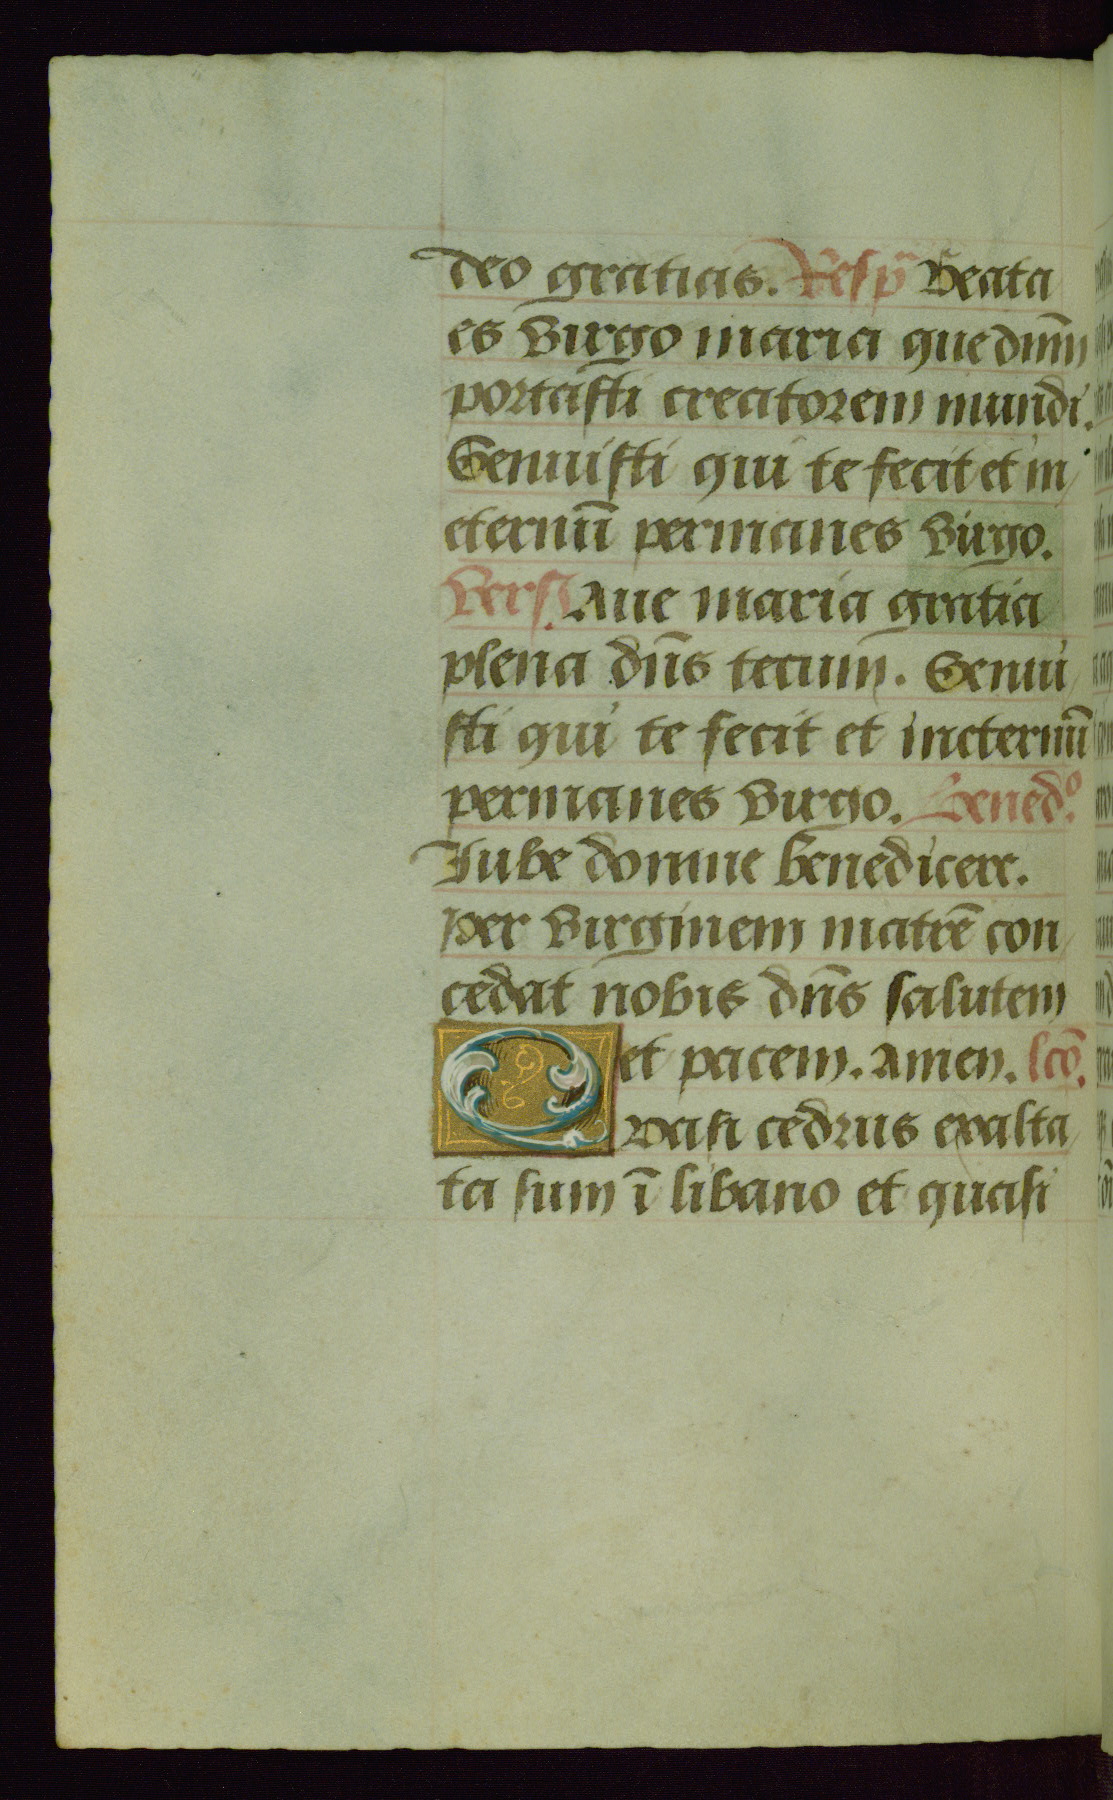 deo gratias. Resp̄ Beata
es Virgo maria que dn̄m
portasti creatorem mundi.
Genuisti qui te fecit et in
eternū permanes Virgo.
Vers. Aue maria gratia
plena dn̄s tecum. Genui
sti qui te fecit et ineternū
permanes Virgo. Benedo.
Iube domne benedicere.
Per Virginem matrē con
cedat nobis dn̄s salutem
et pacem. Amen. lcō.
Qvasi cedrus exalta
ta sum ī libano et quasi